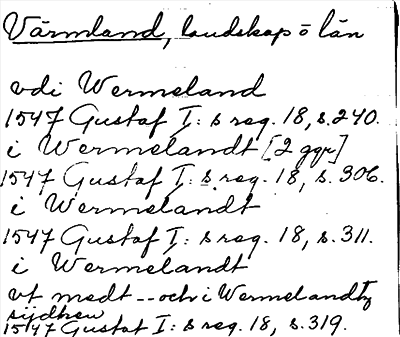 Värmland, landskap o län
vdi Wermeland
1547 Gustaf I:s reg. 18, s. 240.
i Wermelandt [2 ggr]
1547 Gustaf I:s reg. 18, s. 306.
i Wermelandt
1547 Gustaf I:s reg. 18, s. 311.
i Wermelandt
vt medt -- och i Wermelandtz
sijdhen
1547 Gustaf I:s reg. 18, s. 319.